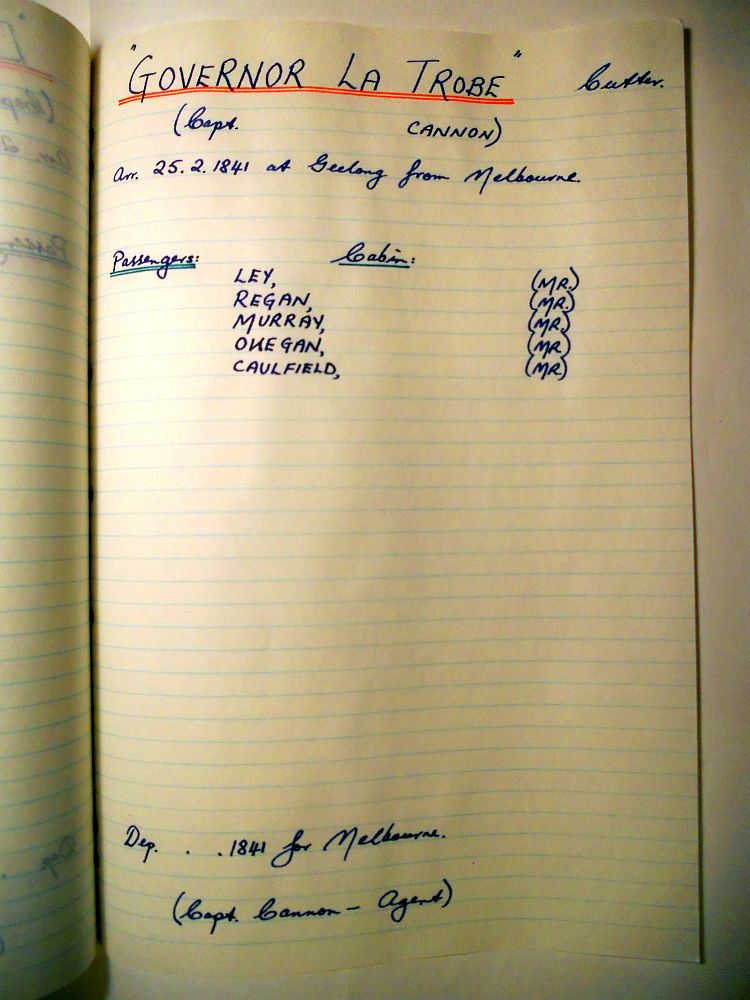 "GOVERNOR LA TROBE" Cutter.
(Capt. CANNON)
Arr. 25.2.1841 at Geelong from Melbourne.
Passengers: Cabin:
LEY, (MR.)
REGAN, (MR.)
MURRAY, (MR.)
OKEGAN, (MR)
CAULFIELD, (MR)
Dep. . .1841 for Melbourne.
(Capt. Cannon - Agent)